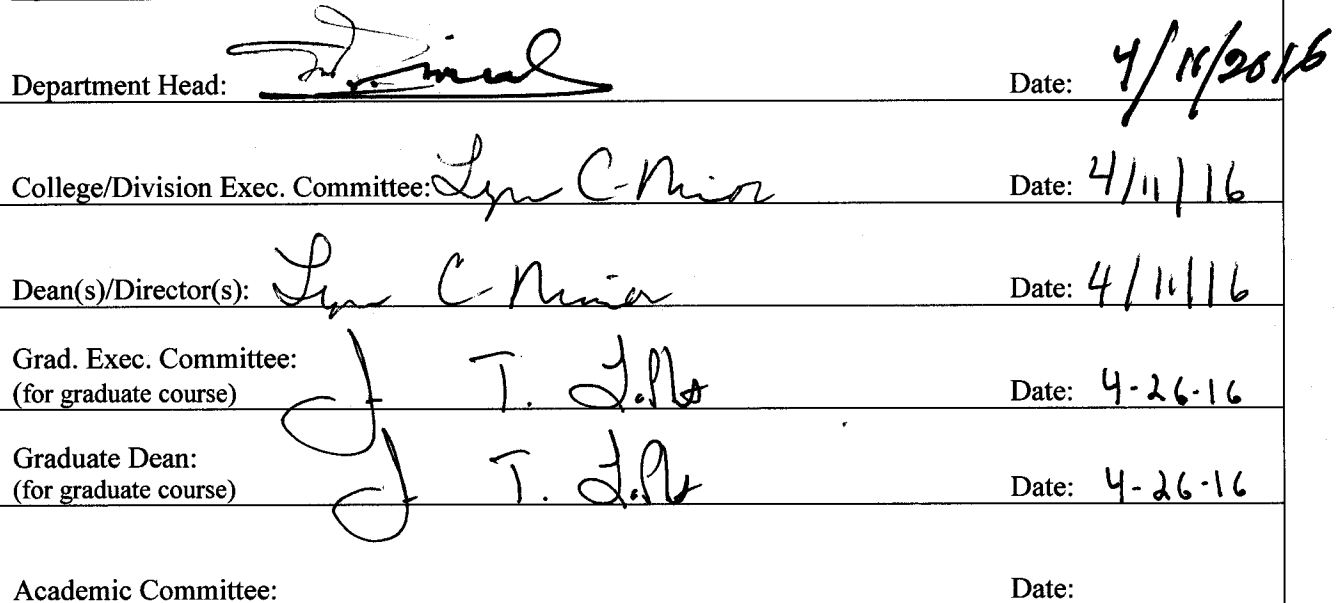 Department Head: Date: 4/11/2016
College/Division Exec. Committee: Lynn C Minor Date: 4/11/16
Dean(s)/Director(s): Lynn C Minor Date: 4/11/16
Grad. Exec. Committee:
(for graduate course) J T. Date: 4-26-16
Graduate Dean:
(for graduate course) J T. Date: 4-26-16
Academic Committee: Date: